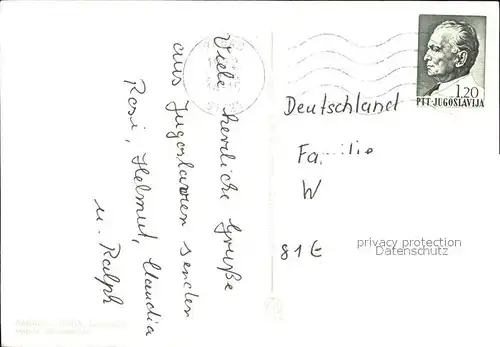 Viele herzliche Grüße
aus Jugoslavien senden
Rosi, Helmut, Claudia
u. Ralph
1.20
PTT-JUGOSLAVIJA
Deutschland
Familie
W
81E
privacy protection
Datenschutz